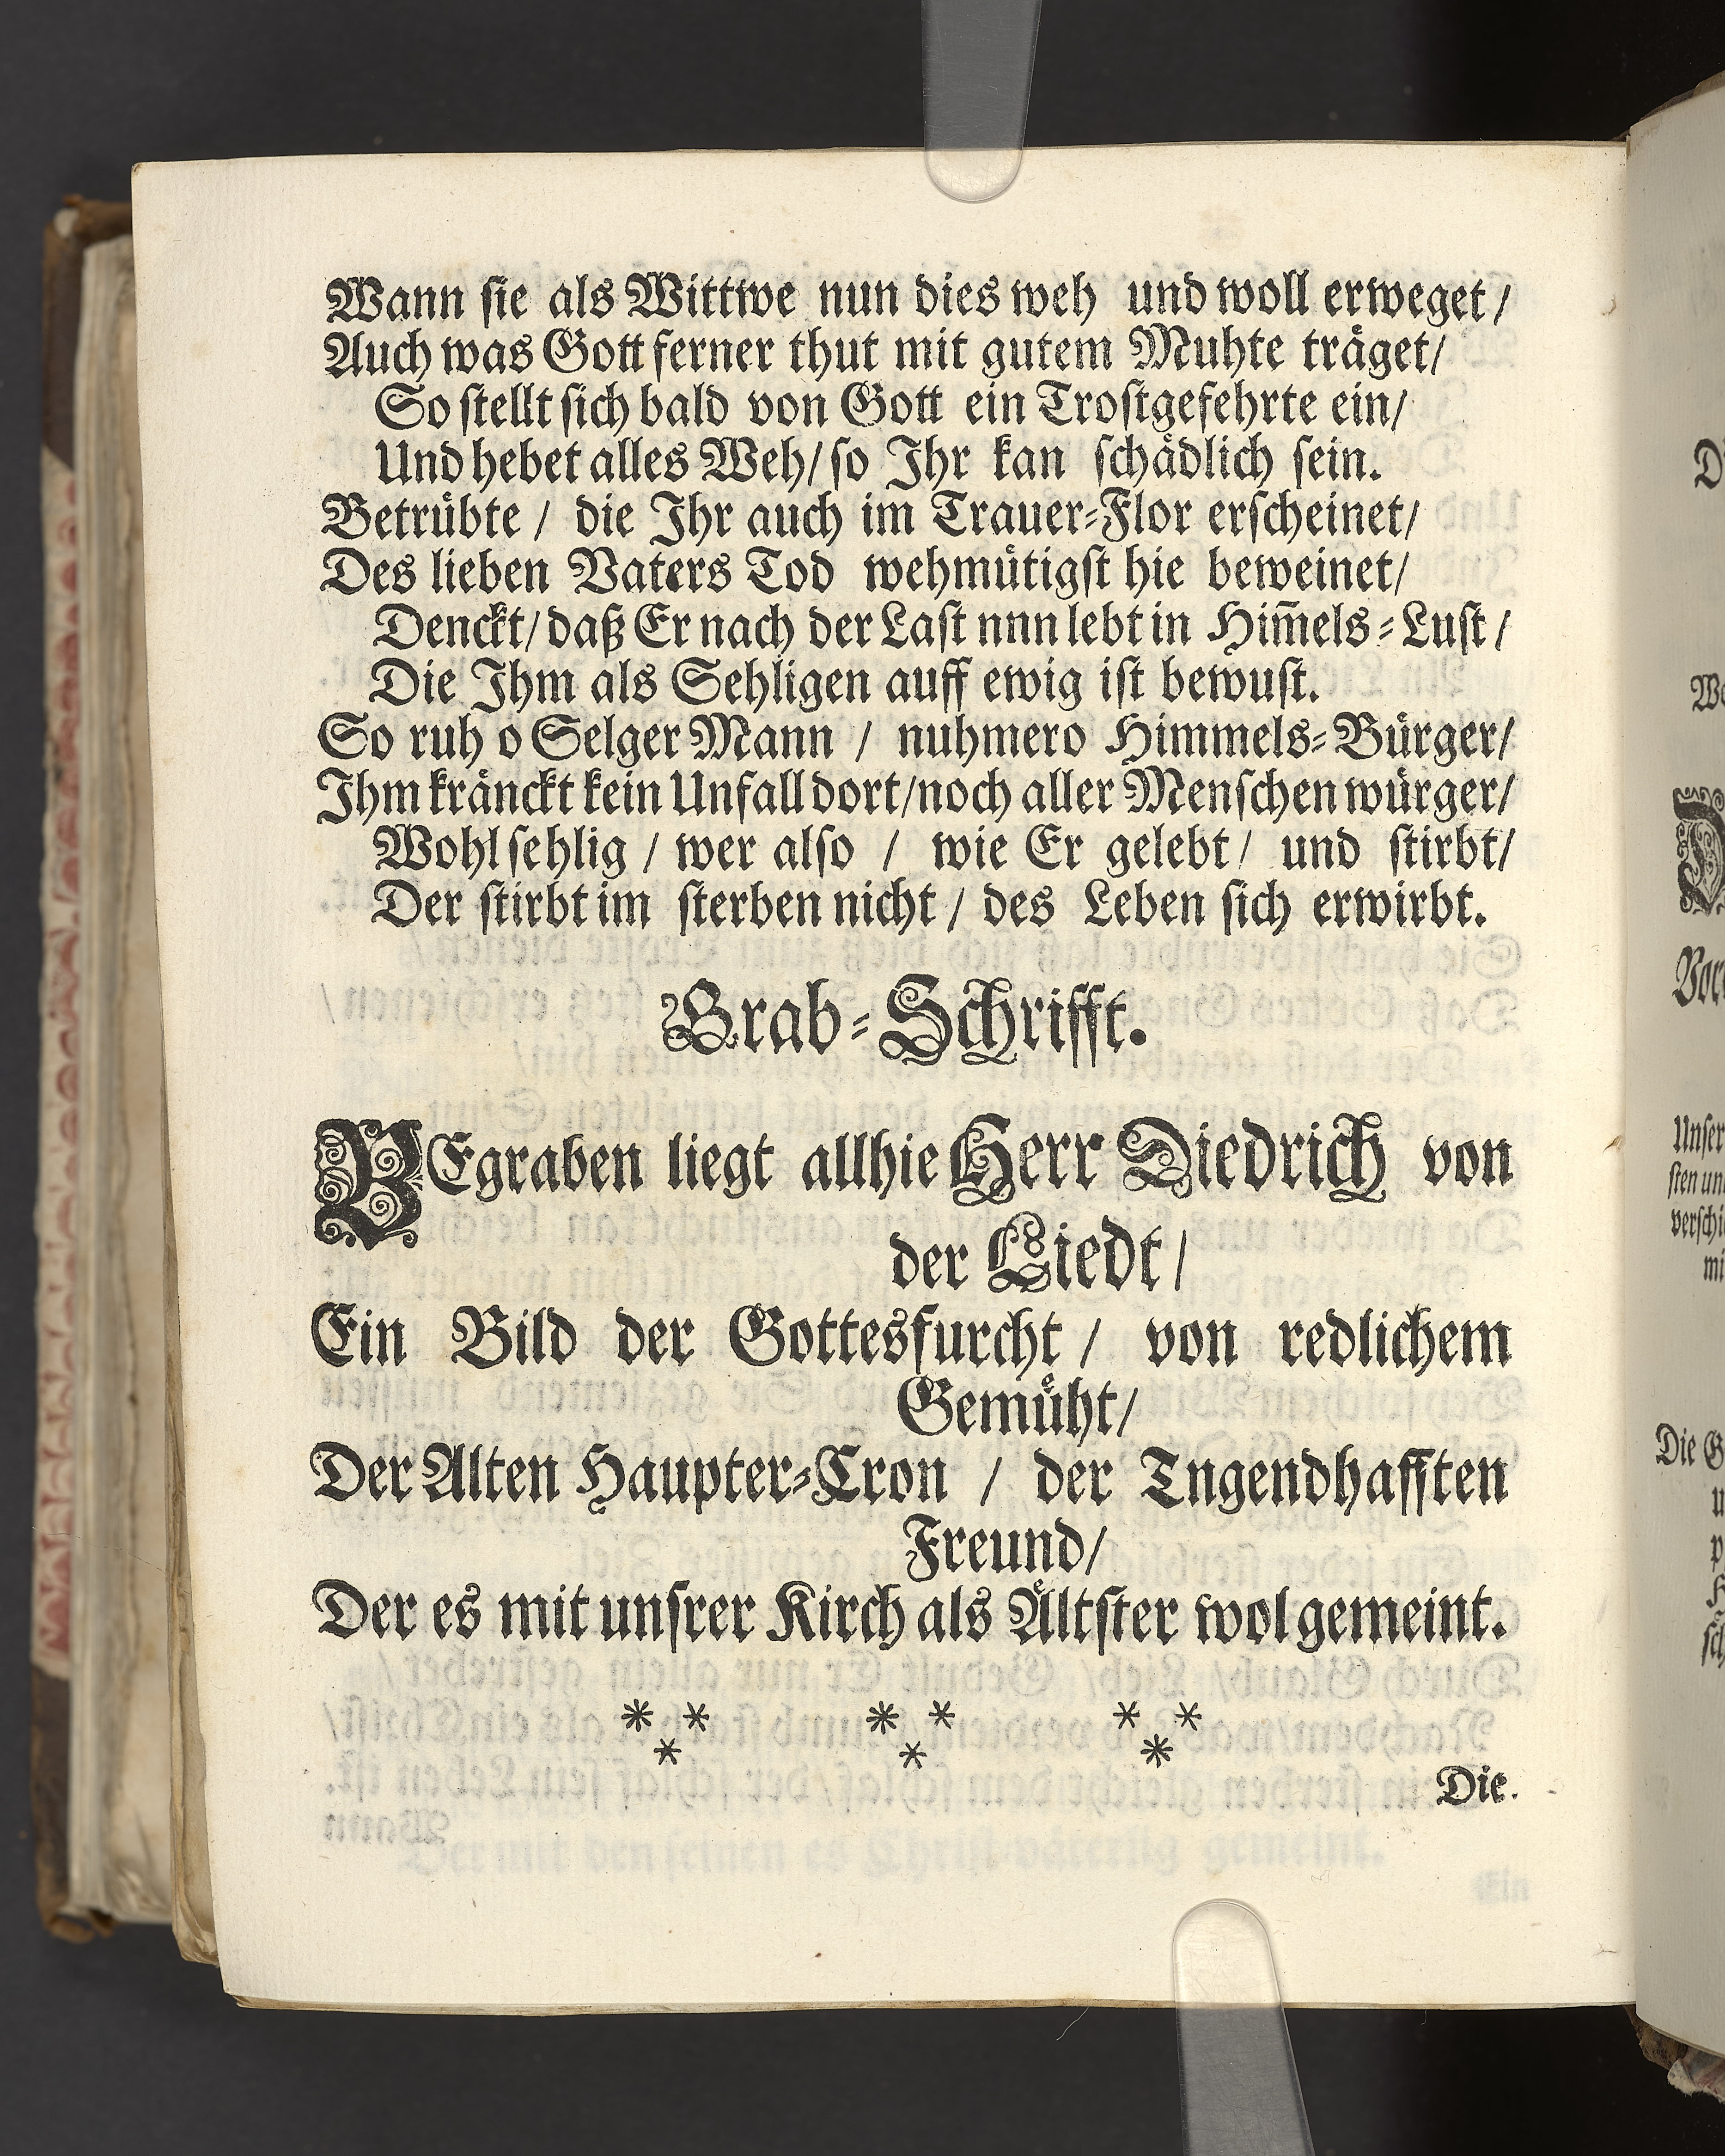 Wann sie als Wittwe nun dies weh und woll erweget/
Auch was Gott ferner thut mit gutem Muhte träget/
So stellt sich bald von Gott ein Trostgefehrte ein/
Und hebet alles Weh/ so Ihr kan schädlich sein.
Betrübte / die Ihr auch im Trauer-Flor erscheinet/
Des lieben Vaters Tod wehmütigst hie beweinet/
Denckt/ daß Er nach der Last nnn lebt in Him̅els-Lust /
Die Ihm als Sehligen auff ewig ist bewust.
So ruh o Selger Mann / nuhmero Himmels-Bürger/
Ihm kränckt kein Unfall dort/noch aller Menschen würger/
Wohl sehlig / wer also / wie Er gelebt/ und stirbt/
Der stirbt im sterben nicht / des Leben sich erwirbt.
Grab-Schrifft.
BEgraben liegt allhie Herr Diedrich von
der Liedt/
Ein Bild der Gottesfurcht / von redlichem
Gemüht/
Der Alten Haupter-Cron / der Tngendhafften
Freund/
Der es mit unsrer Kirch als Ältster wol gemeint.
* * * * * *
* * *
Die.